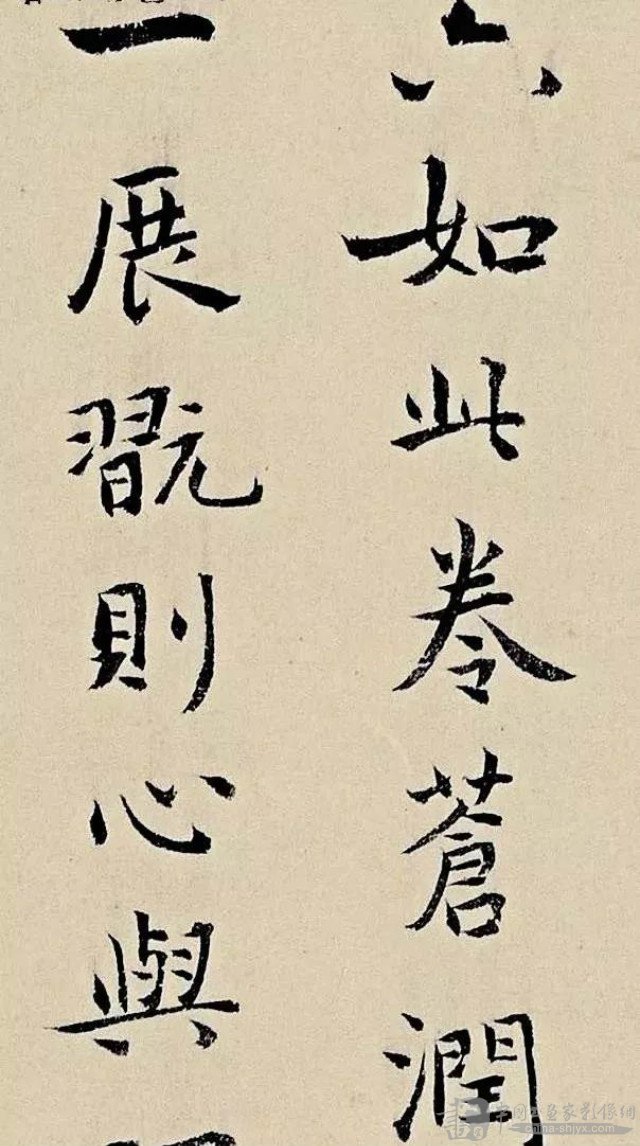 六如此卷蒼潤
一展翫則心與
中国书画家影像网
china-shjyx.com